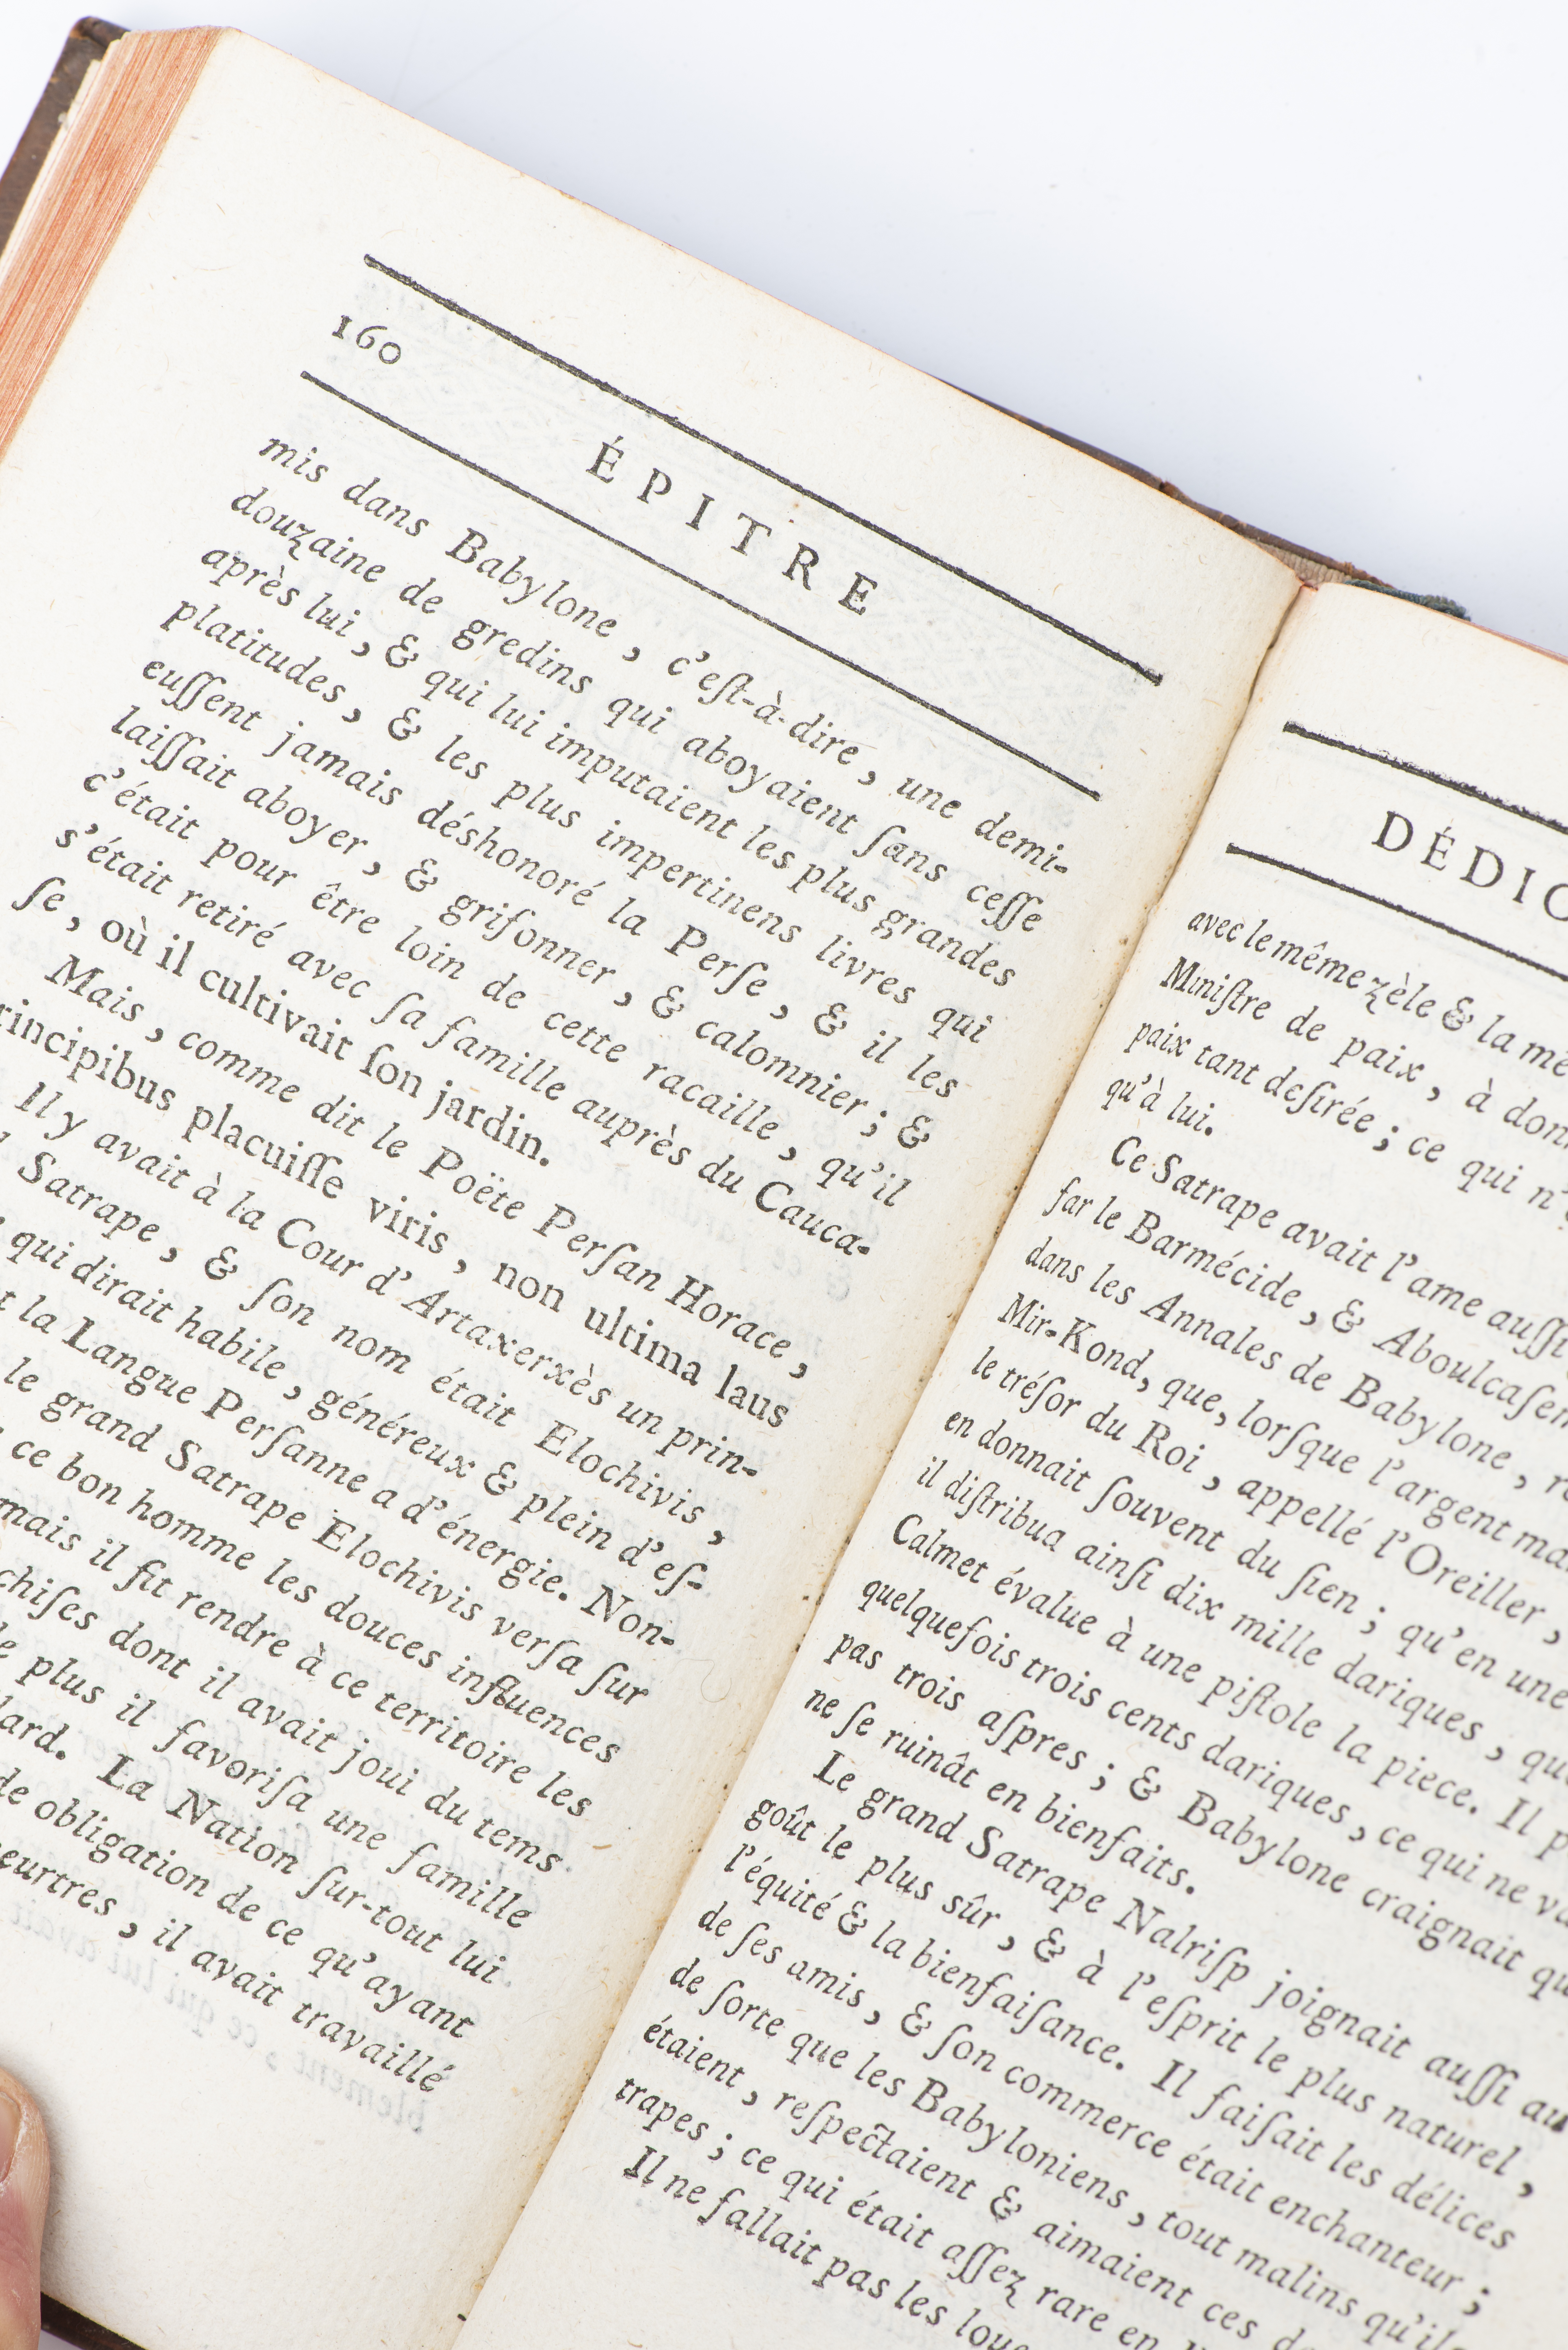 160
ÉPITRE
mis dans Babylone, c'eſt-à-dire, une demi-
douzaine de gredins qui aboyaient ſans ceſſe
après lui, & qui lui imputaient les plus grandes
platitudes, & les plus impertinens livres qui
euſſent jamais déshonoré la Perſe, & il les
laiſſait aboyer, & grifonner, & calomnier; &
c'était pour être loin de cette racaille, qu'il
s'était retiré avec ſa famille auprès du Cauca-
ſe, où il cultivait ſon jardin.
Mais, comme dit le Poëte Perſan Horace,
rincipibus placuiſſe viris, non ultima laus
Il y avait à la Cour d'Artaxerxès un prin-
Satrape, & ſon nom était Elochivis,
qui dirait habile, généreux & plein d'eſ-
la Langue Perſanne a d'énergie. Non-
le grand Satrape Elochivis verſa ſur
ce bon homme les douces influences
mais il fit rendre à ce territoire les
chiſes dont il avait joui du tems
plus il favoriſa une famille
lard. La Nation ſur-tout lui
de obligation de ce qu'ayant
eurtres, il avait travaillé
DÉDIC
avec le même zèle & la mê
Miniſtre de paix, à donn
paix tant deſirée; ce qui n'
qu'à lui.
Ce Satrape avait l'ame auſſi
far le Barmécide, & Aboulcaſem
dans les Annales de Babylone, re
Mir-Kond, que, lorſque l'argent ma
le tréſor du Roi, appellé l'Oreiller,
en donnait ſouvent du ſien; qu'en une
il diſtribua ainſi dix mille dariques, que
Calmet évalue à une piſtole la piece. Il p
quelquefois trois cents dariques, ce qui ne va
pas trois aſpres; & Babylone craignait qu
ne ſe ruinât en bienfaits.
Le grand Satrape Nalriſp joignait auſſi au
goût le plus sûr, & à l'eſprit le plus naturel,
l'équité & la bienfaiſance. Il faiſait les délices
de ſes amis, & ſon commerce était enchanteur;
de ſorte que les Babyloniens, tout malins qu'il
étaient, reſpectaient & aimaient ces
trapes; ce qui était aſſez rare en
Il ne fallait pas les loue